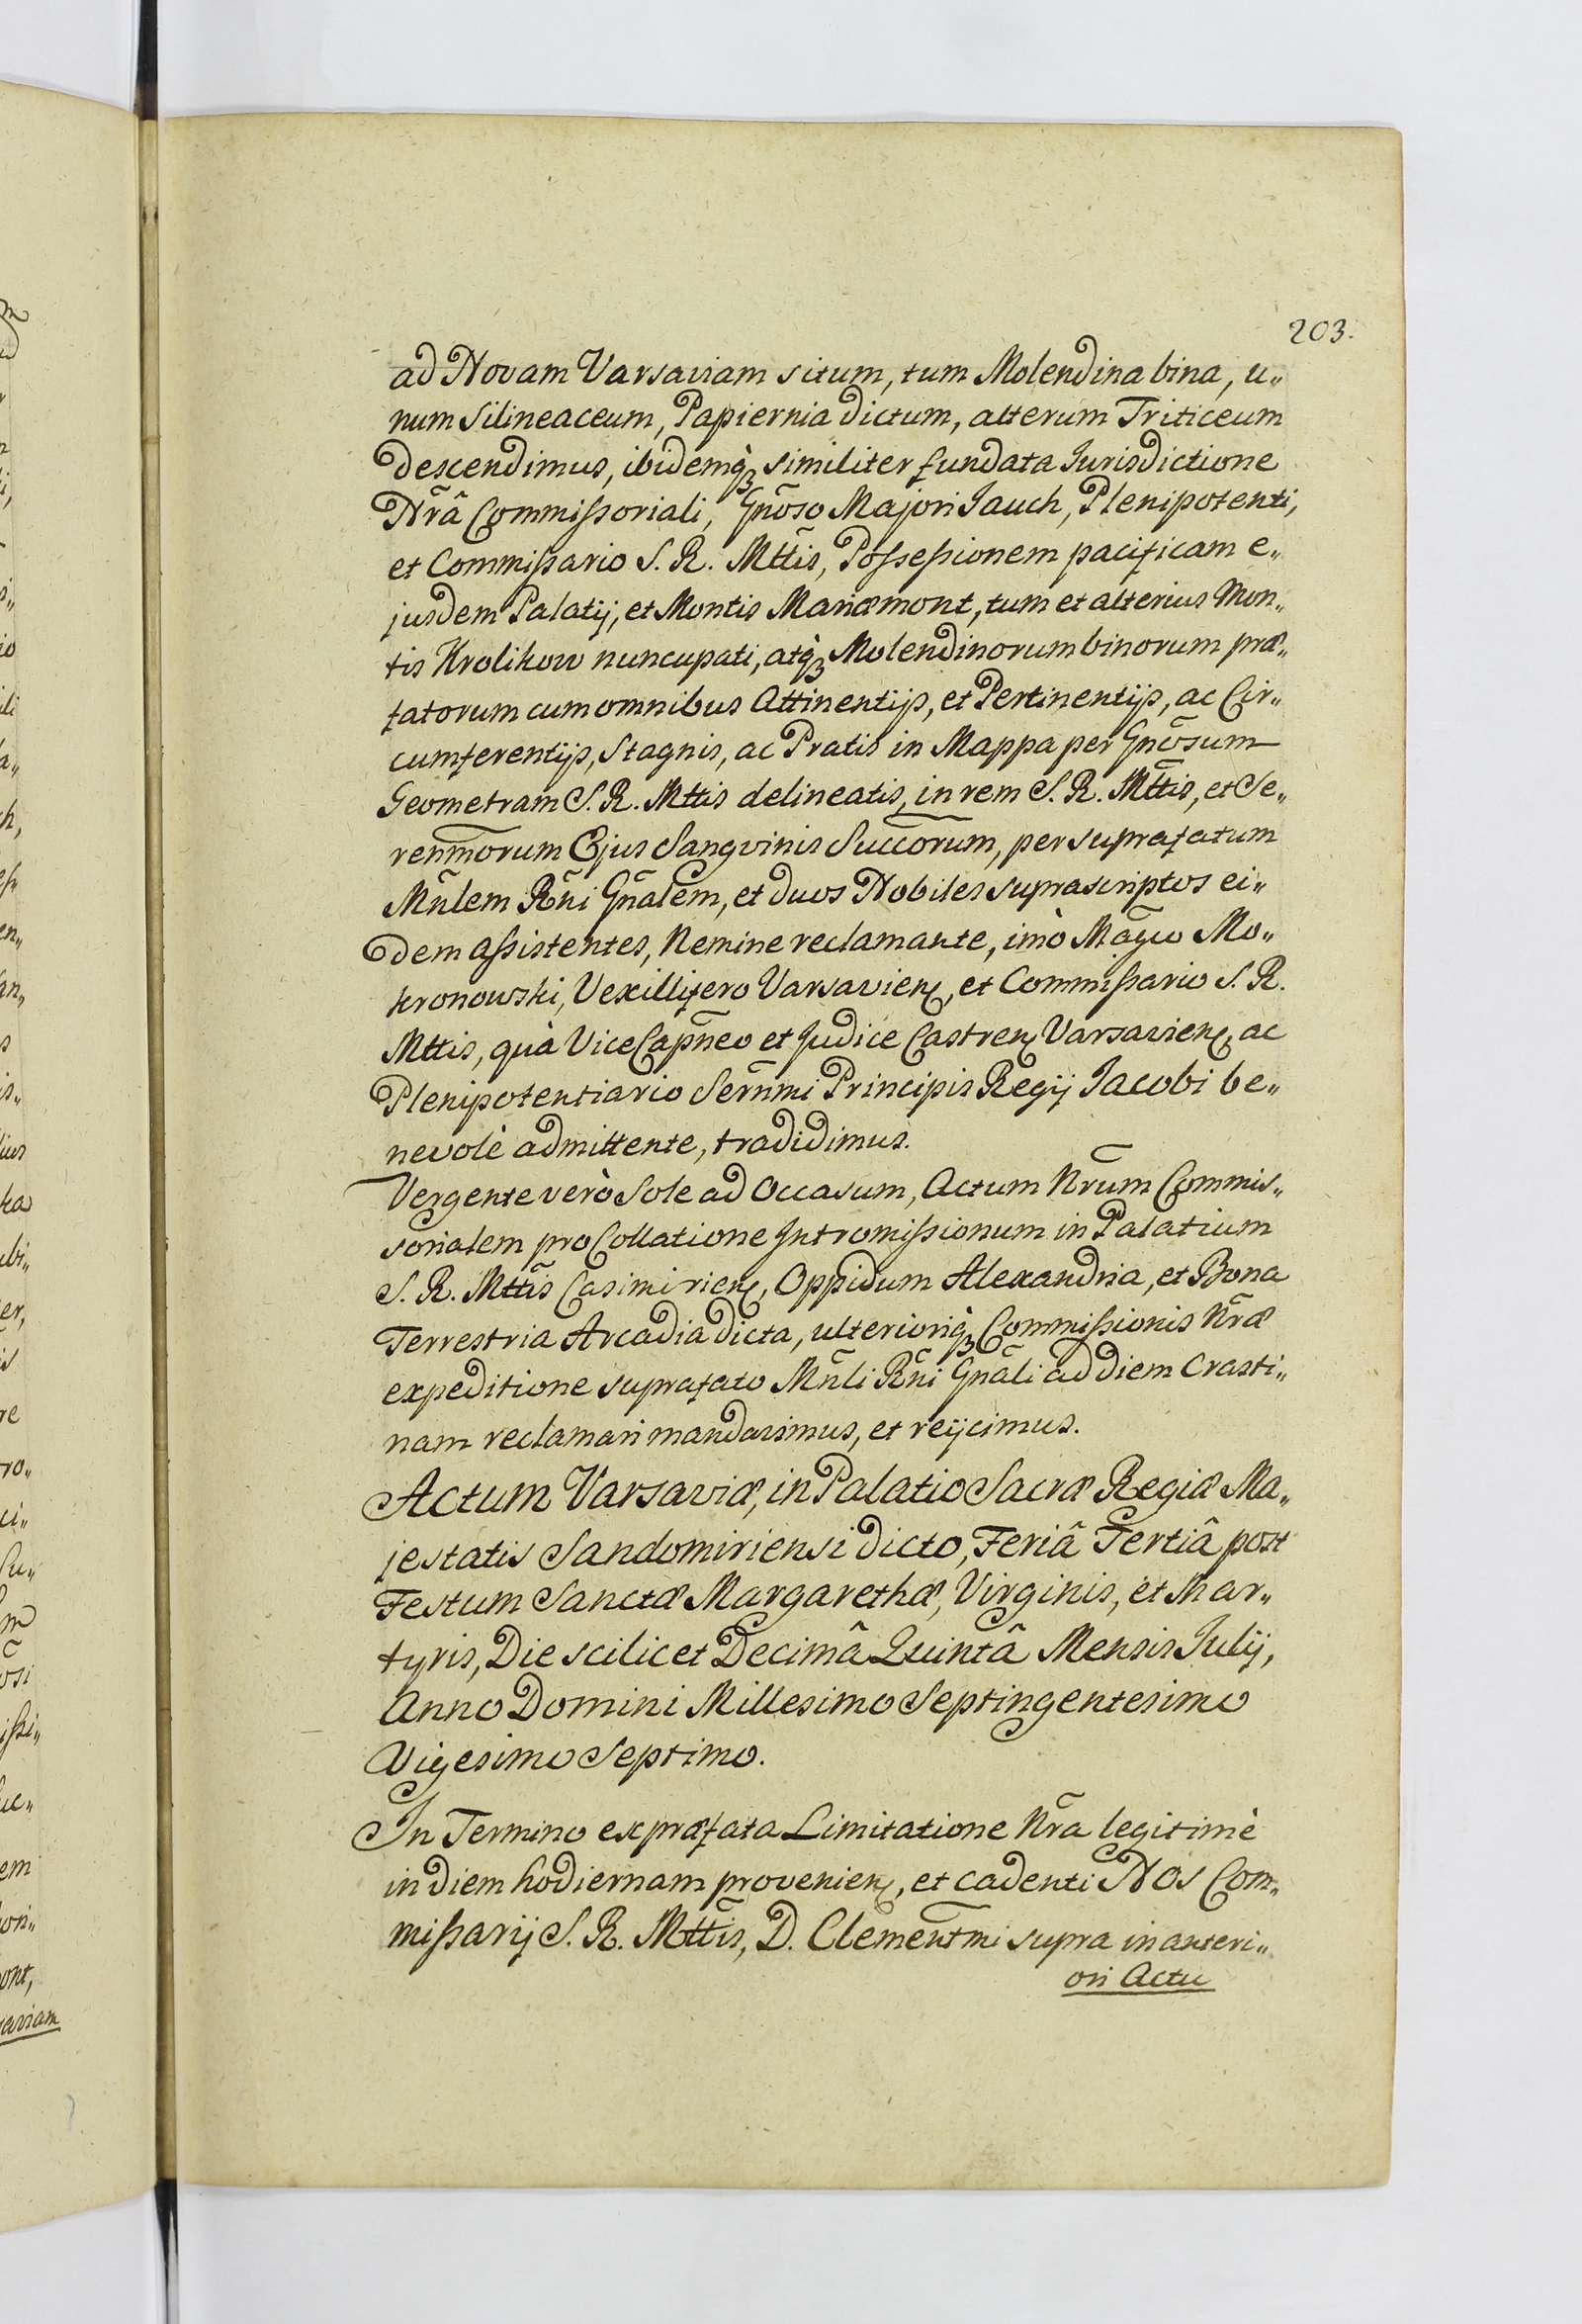 203.
ad Novam Varsaviam situm, tum Molendina bina, u„
num Silineaceum, Papiernia dictum, alterum Triticeum
descendimus, ibidemq̀ꝫ similiter fundata Jurisdictione
Nr̃â Commißoriali, Gnõso Majori Jauch, Plenipotenti,
et Commißario S. R. Mtt̃is, Poßeßionem pacificam e„
jusdem Palatij, et Montis Mariæmont, tum et alterius Mon„
tis Krolikow nuncupati, atq̀ꝫ Molendinorum binorum præ„
fatorum cum omnibus Attinentijs, et Pertinentijs, ac Cir„
cumferentijs, Stagnis, ac Pratis in Mappa per Gnõsum
Geometram S. R. Mttis delineatis, in rem S. R. Mtt̃is, et Se„
renm̃orum Ejus Sangvinis Succõrum, per suprafatum
Mñlem Rñi Gñalem, et duos Nobiles suprascriptos ei„
dem aßistentes, Nemine reclamante, imò Mag̃co Mo„
kronowski, Vexillifero Varsavienꝭ, et Commißario S. R.
Mttis, quà ViceCapñeo et Judice Castrenꝭ Varsavienꝭ, ac
Plenipotentiario Serñmi Principis Regij Jacobi be„
nevolè admittente, tradidimus.
Vergente verò Sole ad Occasum, Actum Nr̃um Commis„
sorialem pro Collatione Intromißionum in Palatium
S. R. Mtt̃is Casimirienꝭ, Oppidum Alexandria, et Bona
Terrestria Arcadia dicta, ulterioriq̀ꝫ Commißionis Nr̃æ
expeditione suprafato Mñli Rñi Gñali ad diem Crasti„
nam reclamari mandavimus, et reijcimus.
Actum Varsaviæ, in Palatio Sacræ Regiæ Ma„
jestatis Sandomiriensi dicto, Feriâ Tertiâ post
Festum Sanctæ Margarethæ, Virginis, et Mar„
tyris, Die scilicet Decimâ Quintâ Mensis Julij,
Anno Domini Millesimo Septingentesimo
Vigesimo Septimo.
In Termino ex præfata Limitatione Nr̃a legitimè
in diem hodiernam provenienꝭ, et cadenti Nos Com„
mißarij S. R. Mtt̃is, D. Clement̃mi supra in anteri„
ori Actu